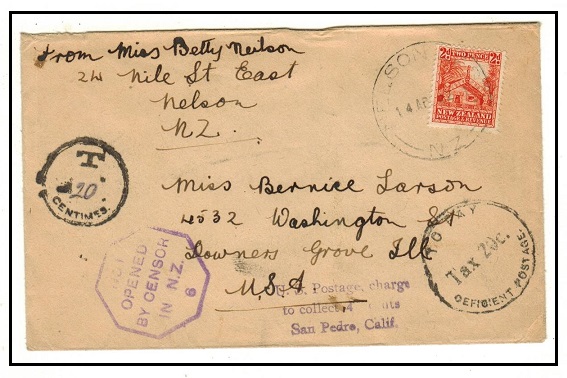 From Miss Betty Neilson
24 Nile St East
Nelson
N.Z.
2d TWO PENCE 2d
NEW ZEALAND
POSTAGE & REVENUE
NELSON
14 AP
N.Z.
T
20
CENTIMES.
Miss Bernice Larson
4532 Washington St
Downers Grove Ill.
U.S.A
NOT
OPENED
BY CENSOR
IN N.Z.
6
TO PAY
Tax 20c.
DEFICIENT POSTAGE.
U. S. Postage, charge
to collect 4
San Pedro, Calif.